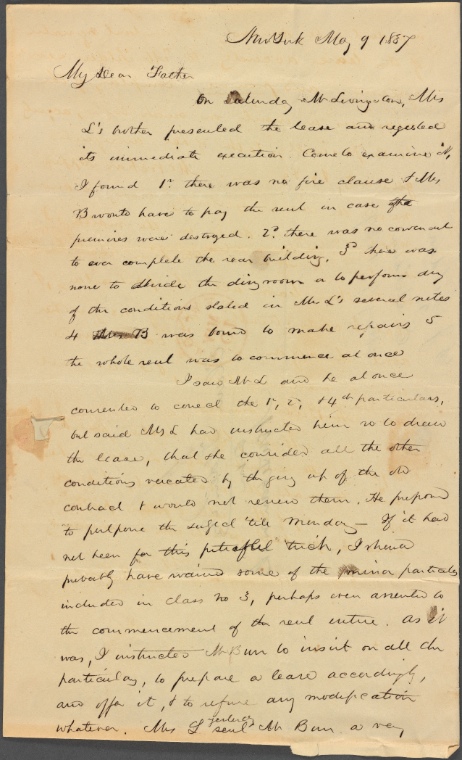 New York May 9 1837
My Dear Father
On Saturday Mr Livingston, Mrs
L's brother presented the lease and requested
its immediate execution. Come to examine it,
I found 1st there was no fire clause & Mrs
B would have to pay the rent in case the
premises were destroyed. 2d there was no covenant
to ever complete the rear building. 3d there was
none to divide the dining room or to perform any
of the conditions stated in Mr L's several notes
4 B was bound to make repairs 5
the whole rent was to commence at once
I saw Mr L and he at once
consented to correct the 1st, 2, & 4th particulars,
but said Mrs L had instructed him so to draw
the lease, that she considered all the other
conditions vacated by the giving up of the old
contract & would not renew them. He proposed
to postpone the subject till Monday — If it had
not been for this trick, I should
probably have waived some of the minor particulars
included in class no 3, perhaps even assented to
the commencement of the rent entire. As it
was, I instructed Mr Burr to insist on all the
particulars, to prepare a lease accordingly,
and offer it, & to refuse any modification
whatever. Mrs L yesterday sent Mr Burr a very